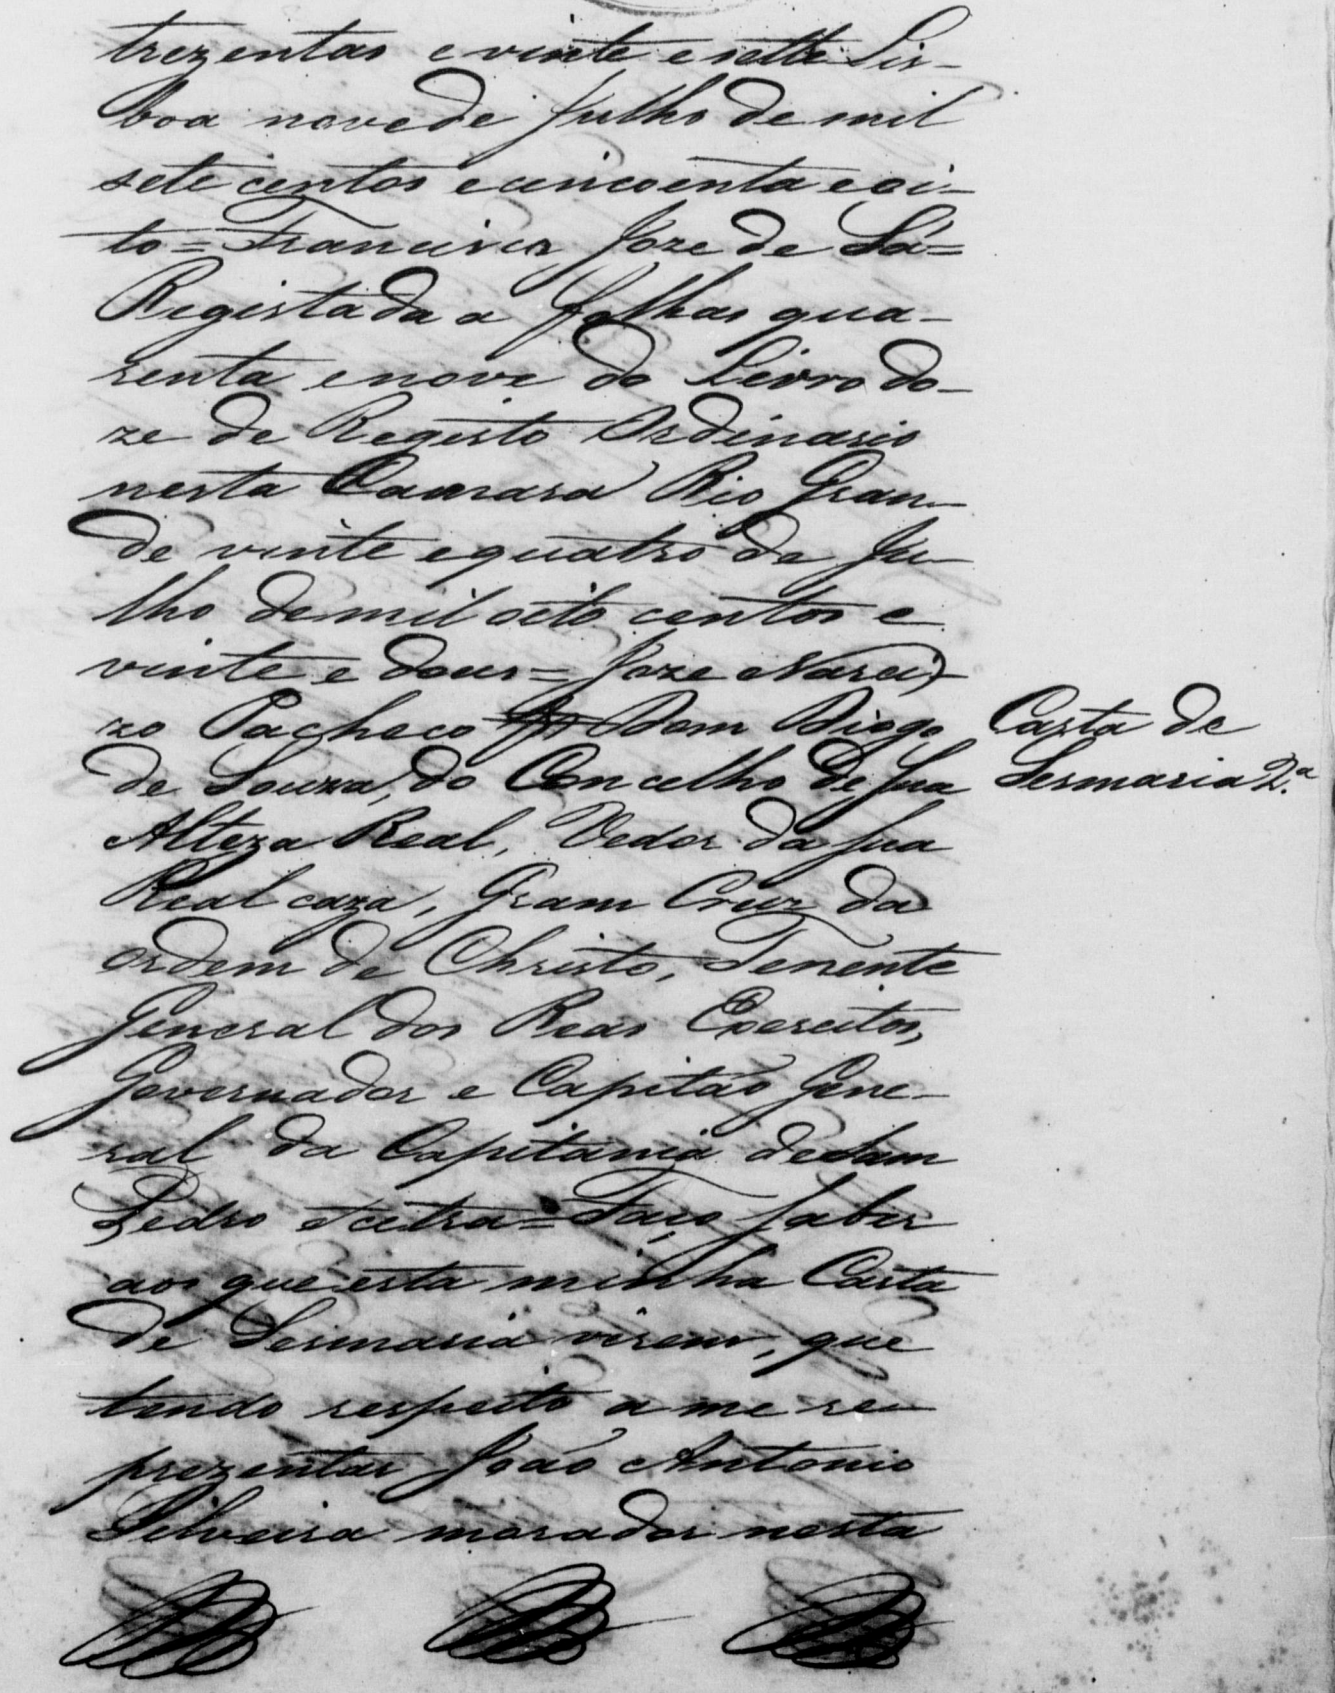 trezentas e vinte e sette Lis-
boa nove de Julho de mil
sete centos e cincoenta e oi-
to = Francisco Joze de Sá =
Registada a folhas qua-
renta e nove do Livro do-
ze de Registo Ordinario
nesta Camara Rio Gran-
de vinte e quatro de Ju-
lho de mil oito centos e
vinte e dous = Joze Narci-
zo Pacheco Dom Diogo
de Souza, do Concelho de Sua
Alteza Real, Vedor da Sua
Real caza, Gram Cruz da
ordem de Christo, Tenente
General dos Reas Exercitos,
Governador e Capitão Gene-
ral da Capitania de Sam
Pedro etcetra = Faço saber
aos que esta minha Carta
de Sesmaria virem, que
tendo respeito a me re-
prezentar João Antonio
Silveira morador nesta
Carta de
Sesmaria 2.ª